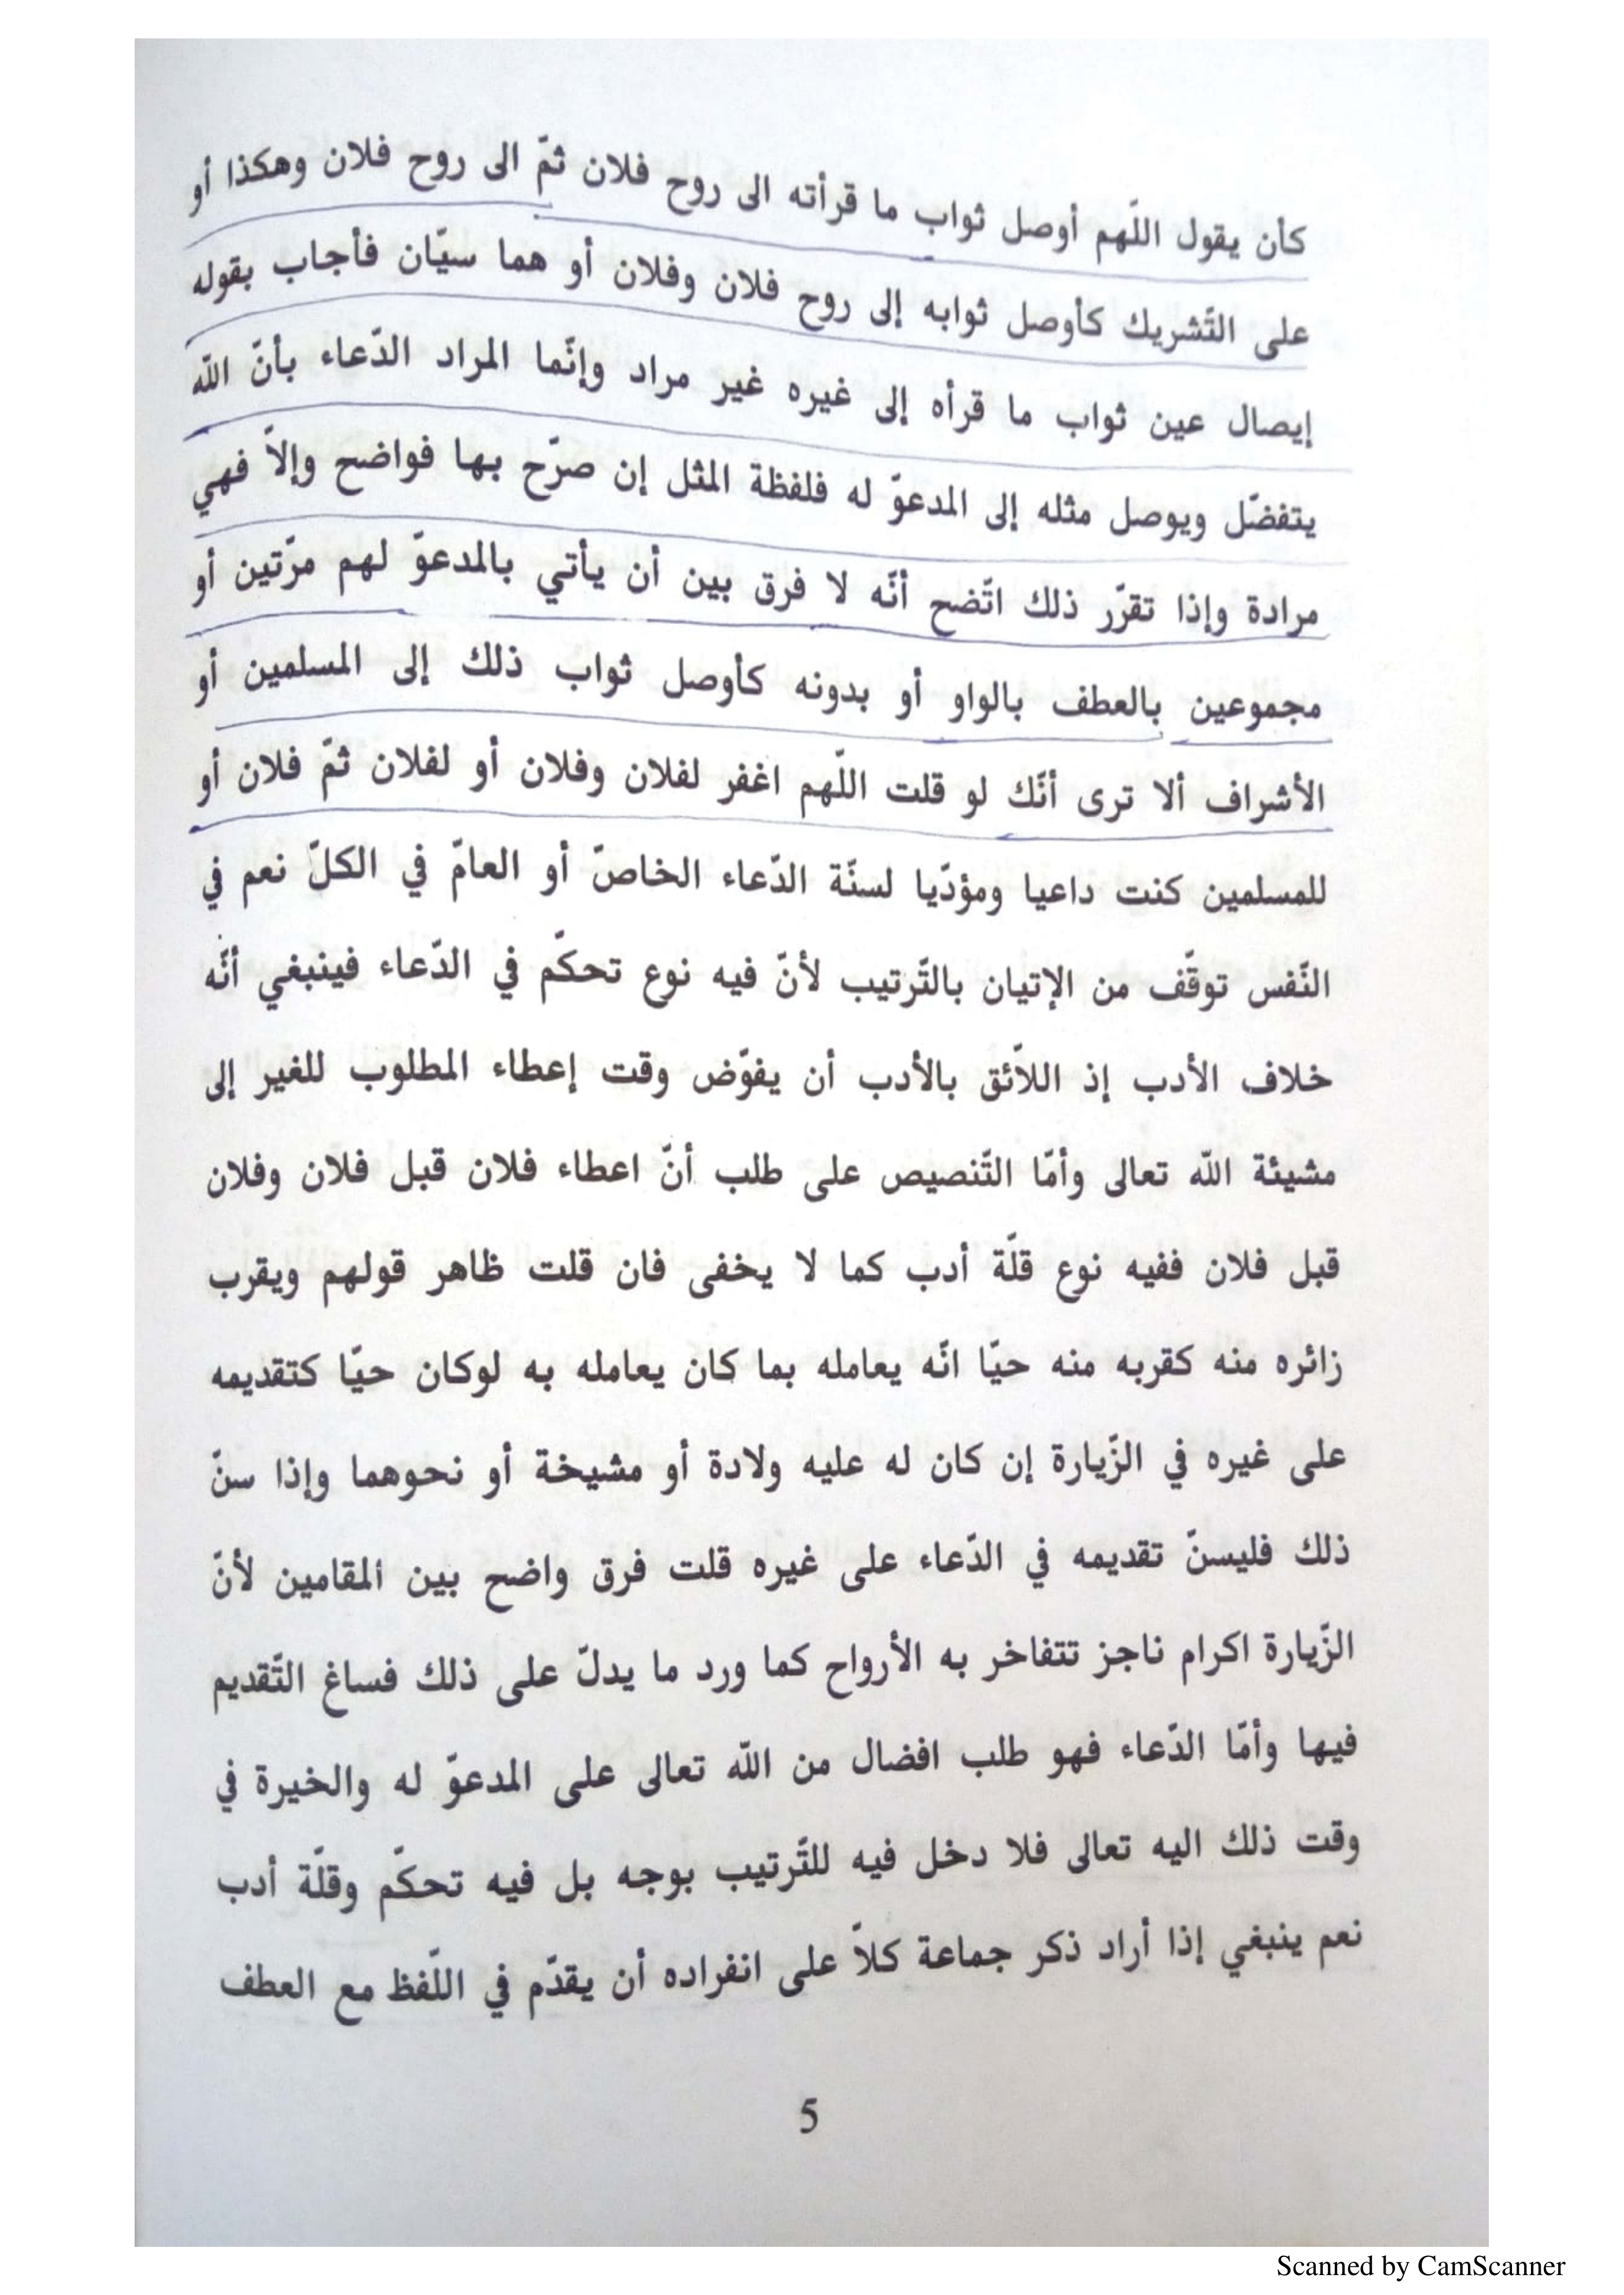 كأن يقول اللّهم أوصل ثواب ما قرأته الى روح فلان ثمّ الى روح فلان وهكذا أو
على التّشريك كأوصل ثوابه إلى روح فلان وفلان أو هما سيّان فأجاب بقوله
إيصال عين ثواب ما قرأه إلى غيره غير مراد وإنّما المراد الدّعاء بأنّ اللّه
يتفضّل ويوصل مثله إلى المدعوّ له فلفظة المثل إن صرّح بها فواضح وإلاّ فهي
مرادة وإذا تقرّر ذلك اتّضح أنّه لا فرق بين أن يأتي بالمدعوّ لهم مرّتين أو
مجموعين بالعطف بالواو أو بدونه كأوصل ثواب ذلك إلى المسلمين أو
الأشراف ألا ترى أنّك لو قلت اللّهم اغفر لفلان وفلان أو لفلان ثمّ فلان أو
للمسلمين كنت داعيا ومؤدّيا لسنّة الدّعاء الخاصّ أو العامّ في الكلّ نعم في
النّفس توقّف من الإتيان بالتّرتيب لأنّ فيه نوع تحكّم في الدّعاء فينبغي أنّه
خلاف الأدب إذ اللاّئق بالأدب أن يفوّض وقت إعطاء المطلوب للغير إلى
مشيئة اللّه تعالى وأمّا التّنصيص على طلب أنّ اعطاء فلان قبل فلان وفلان
قبل فلان ففيه نوع قلّة أدب كما لا يخفى فان قلت ظاهر قولهم ويقرب
زائره منه كقربه منه حيّا انّه يعامله بما كان يعامله به لوكان حيّا كتقديمه
على غيره في الزّيارة إن كان له عليه ولادة أو مشيخة أو نحوهما وإذا سنّ
ذلك فليسنّ تقديمه في الدّعاء على غيره قلت فرق واضح بين المقامين لأنّ
الزّيارة اكرام ناجز تتفاخر به الأرواح كما ورد ما يدلّ على ذلك فساغ التّقديم
فيها وأمّا الدّعاء فهو طلب افضال من اللّه تعالى على المدعوّ له والخيرة في
وقت ذلك اليه تعالى فلا دخل فيه للتّرتيب بوجه بل فيه تحكّم وقلّة أدب
نعم ينبغي إذا أراد ذكر جماعة كلاّ على انفراده أن يقدّم في اللّفظ مع العطف
5
Scanned by CamScanner